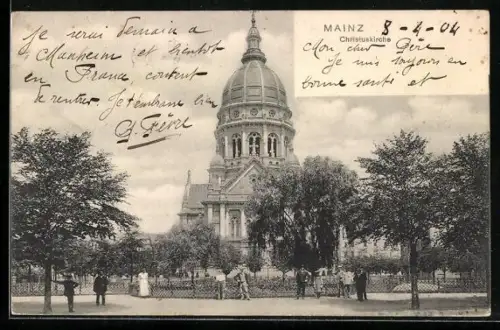 Je serai demain a
Manheim et bientot
en France, content
de rentrer. Je t'embrasse bien
G. Féré
MAINZ
Christuskirche
8-4-04
Mon cher Père
Je suis toujours en
bonne santé et